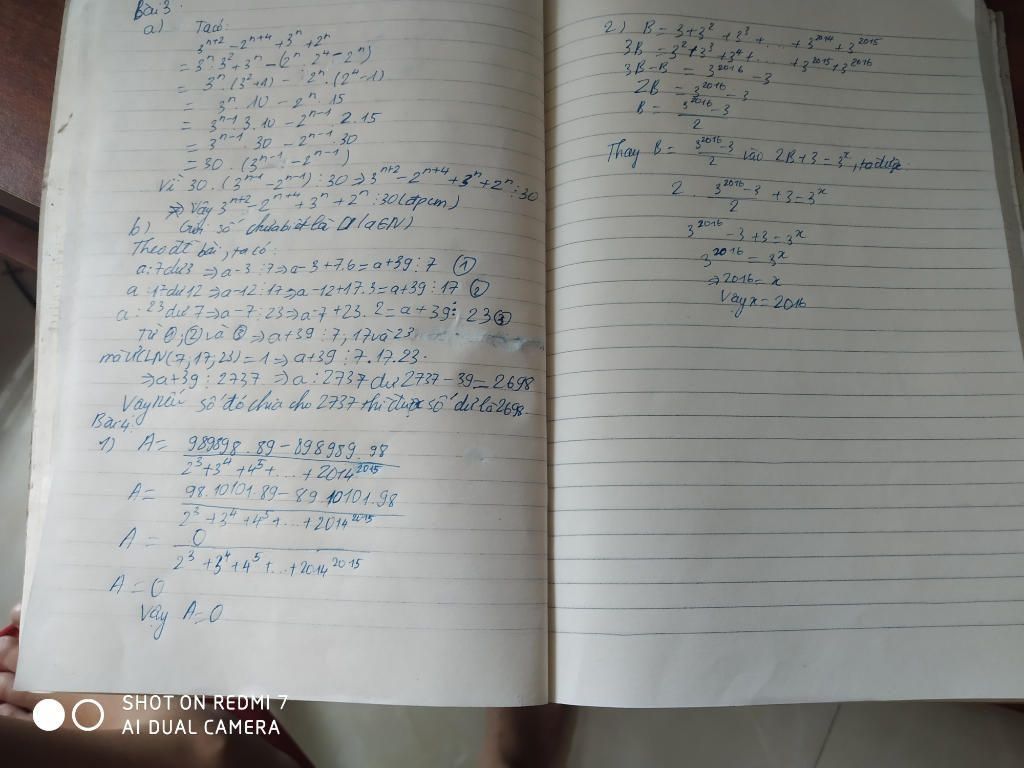 Bài 3
a) Ta có:
3^{n+2} - 2^{n+4} + 3^n + 2^n
= 3^n . 3^2 + 3^n - (2^n . 2^4 - 2^n)
= 3^n . (3^2 + 1) - 2^n . (2^4 - 1)
= 3^n . 10 - 2^n . 15
= 3^{n-1} 3 . 10 - 2^{n-1} . 2 . 15
= 3^{n-1} . 30 - 2^{n-1} . 30
= 30 . (3^{n-1} - 2^{n-1})
Vì 30 . (3^{n-1} - 2^{n-1}) ⋮ 30 => 3^{n+2} - 2^{n+4} + 3^n + 2^n ⋮ 30
=> Vậy 3^{n+2} - 2^{n+4} + 3^n + 2^n ⋮ 30 (đpcm)
b) Gọi số chưa biết là a (a∈N)
Theo đề bài, ta có:
a : 7 dư 3 => a - 3 ⋮ 7 => a - 3 + 7.6 = a + 39 ⋮ 7 (1)
a : 17 dư 12 => a - 12 ⋮ 17 => a - 12 + 17.3 = a + 39 ⋮ 17 (2)
a : 23 dư 7 => a - 7 ⋮ 23 => a - 7 + 23.2 = a + 39 ⋮ 23 (3)
Từ (1), (2) và (3) => a + 39 ⋮ 7, 17 và 23
mà ƯCLN(7, 17, 23) = 1 => a + 39 ⋮ 7.17.23.
=> a + 39 ⋮ 2737 => a : 2737 dư 2737 - 39 = 2698
Vậy nếu số đó chia cho 2737 thì được số dư là 2698
Bài 4
1) A = \frac{989898 . 89 - 898989 . 98}{2^3 + 3^4 + 4^5 + ... + 2014^{2015}}
A = \frac{98.10101.89 - 89.10101.98}{2^3 + 3^4 + 4^5 + ... + 2014^{2015}}
A = \frac{0}{2^3 + 3^4 + 4^5 + ... + 2014^{2015}}
A = 0
Vậy A = 0
2) B = 3 + 3^2 + 3^3 + ... + 3^{2014} + 3^{2015}
3B = 3^2 + 3^3 + 3^4 + ... + 3^{2015} + 3^{2016}
3B - B = 3^{2016} - 3
2B = 3^{2016} - 3
B = \frac{3^{2016} - 3}{2}
Thay B = \frac{3^{2016} - 3}{2} vào 2B + 3 = 3^x, ta được:
2 . \frac{3^{2016} - 3}{2} + 3 = 3^x
3^{2016} - 3 + 3 = 3^x
3^{2016} = 3^x
=> 2016 = x
Vậy x = 2016
SHOT ON REDMI 7
AI DUAL CAMERA